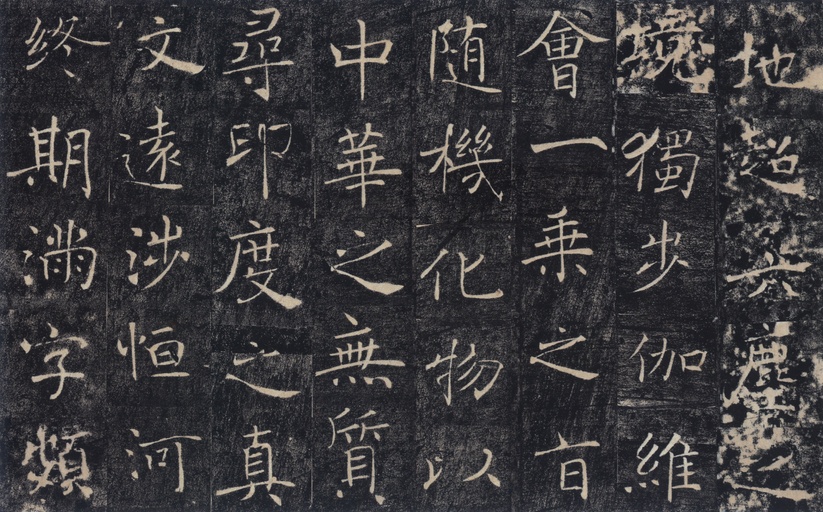 地超六塵之
境獨步伽維
會一乘之旨
随機化物以
中華之無質
尋印度之真
文遠涉恒河
終期滿字頻